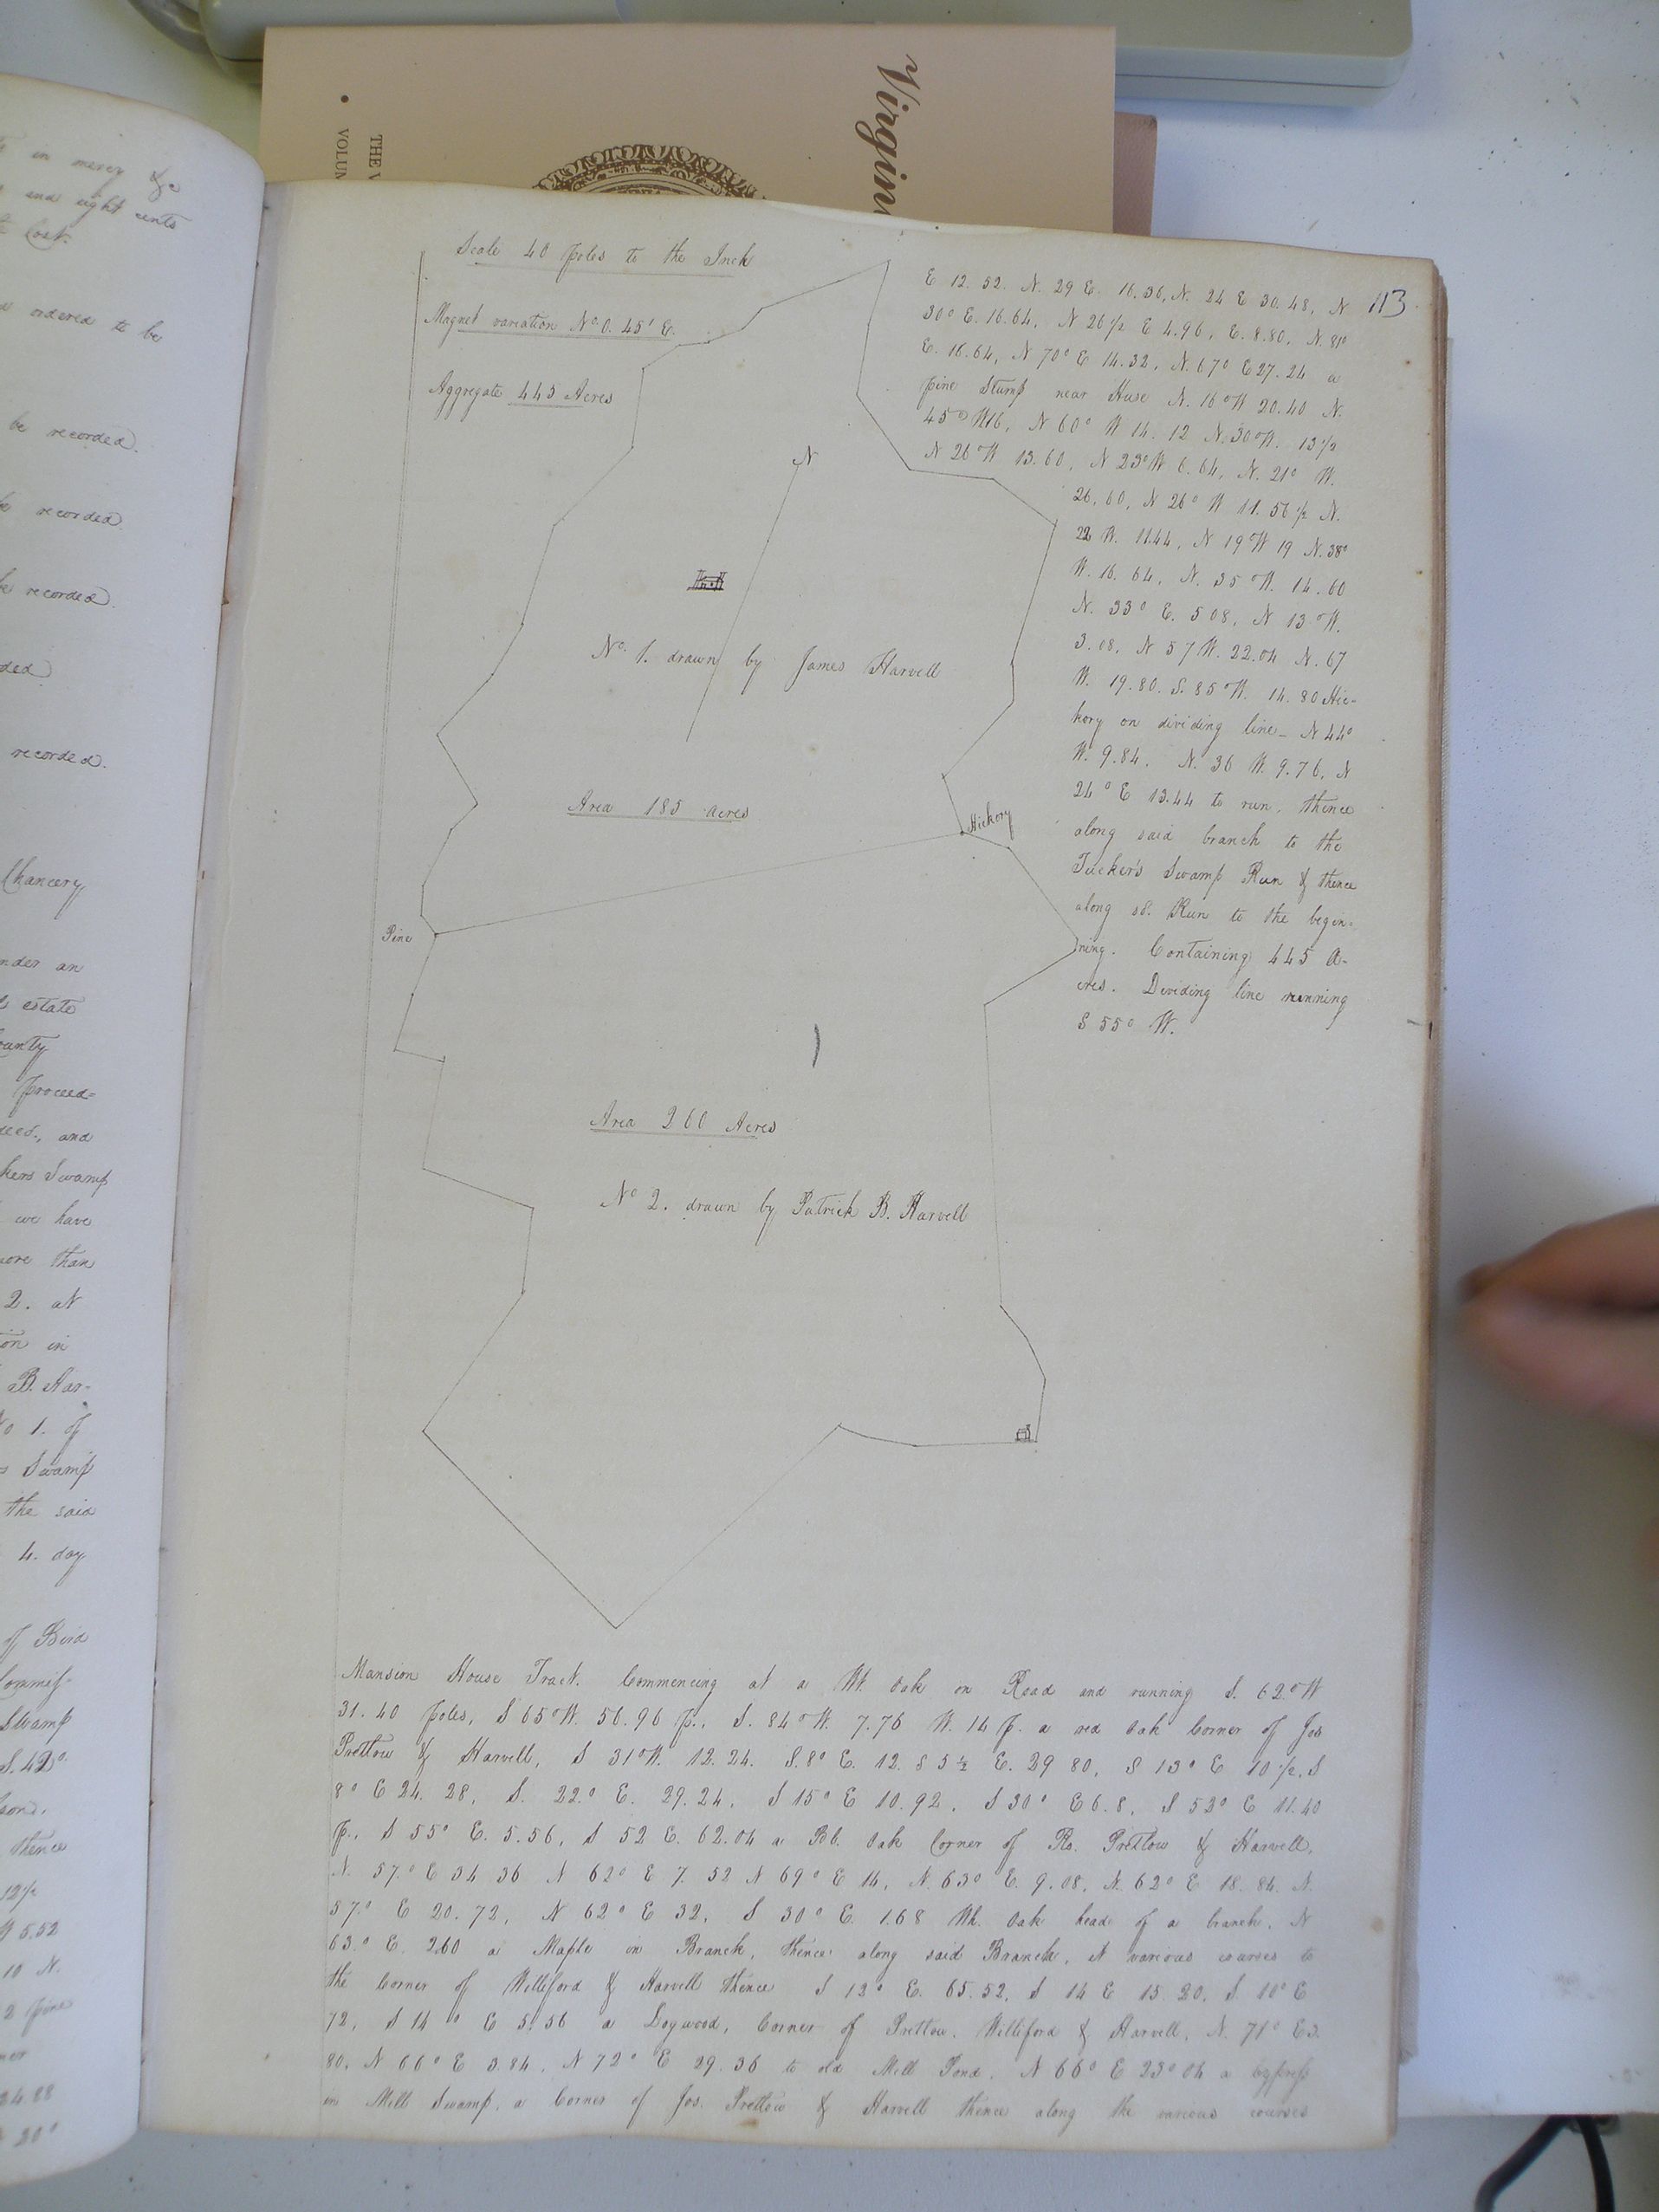 Virgin
THE V
VOLUM
in mercy &c
and eight cents
Cost.
ordered to be
be recorded.
recorded.
be recorded.
recorded.
Chancery,
under an
estate
County
Proceed-
and
kers Swamp
we have
more than
2. at
in
B. Har-
No 1. of
Swamp
the said
4. day
of Bird
Swamp
thence
5.52
10 N.
2 pine
24.88
20°
113
Scale 40 poles to the Inch
Magnet variation No. 0. 45' E.
Aggregate 445 Acres
N
No. 1. drawn by James Harvell
Area 185 acres
Hickory
Pine
Area 260 Acres
No 2. drawn by Patrick B. Harvell
E 12.52. N. 29 E. 16.36, N. 24 E 30.48, N
30° E. 16.64, N 26 1/2 E 4.96, E. 8.80, N. 81°
E. 16.64, N 70° E 14.32, N. 67° E 27.24 a
pine Stump near House N. 16° W 20.40 N.
45° W 16, N 60° W 14.12 N. 30° W. 13 1/2
N 26° W 13.60, N 23° W 6.64, N. 21° W.
26.60, N 26° W 11.56 1/2 N.
22 W. 11.44, N 19° W 19 N. 38°
W. 16.64, N. 35° W. 14.60
N. 33° E. 5 08, N 13° W.
3.08, N 57 W. 22.04 N. 67
W. 19.80. S. 85° W. 14.80 Hic-
kory on dividing line - N 44°
W. 9.84. N. 36 W. 9.76, N
24° E 13.44 to run, thence
along said branch to the
Tucker's Swamp Run & thence
along sd. Run to the begin-
ning. Containing 445 A-
cres. Dividing line running
S 55° W.
Mansion House Tract. Commencing at a Wt. Oak on Road and running S. 62° W
31.40 poles, S 65° W. 56.96 p., S. 84° W. 7.76 W. 14 p. a red Oak Corner of Jos
Pretlow & Harvell, S 31° W. 12.24. S. 8° E. 12. S 5 1/2 E. 29 80, S 13° E 10 1/2, S
8° E 24.28, S. 22° E. 29.24, S 15° E 10.92, S 30° E 6.8, S 53° E 11.40
p., S 55° E. 5.56, S 52 E. 62.04 a Bl. Oak Corner of Ro. Pretlow & Harvell,
N. 57° E 34 36 N 62° E 7.52 N 69° E 14, N. 63° E. 9.08, N. 62° E 18.84. N.
57° E 20.72, N 62° E 32, S 30° E. 1.68 Wh. Oak head of a branch, N
63° E. 2.60 a Maple in Branch, thence along said Branch, it various courses to
the Corner of Williford & Harvell thence S 13° E. 65.52, S 14 E 15.20, S. 10° E
72, S 14° E 5.56 a Dogwood, Corner of Pretlow, Williford & Harvell, N. 71° E 3.
80, N 66° E 3.84, N 72° E 29.36 to old Mill Pond, N 66° E 23° 04 a Cypress
in Mill Swamp, a Corner of Jos. Pretlow & Harvell thence along the various courses